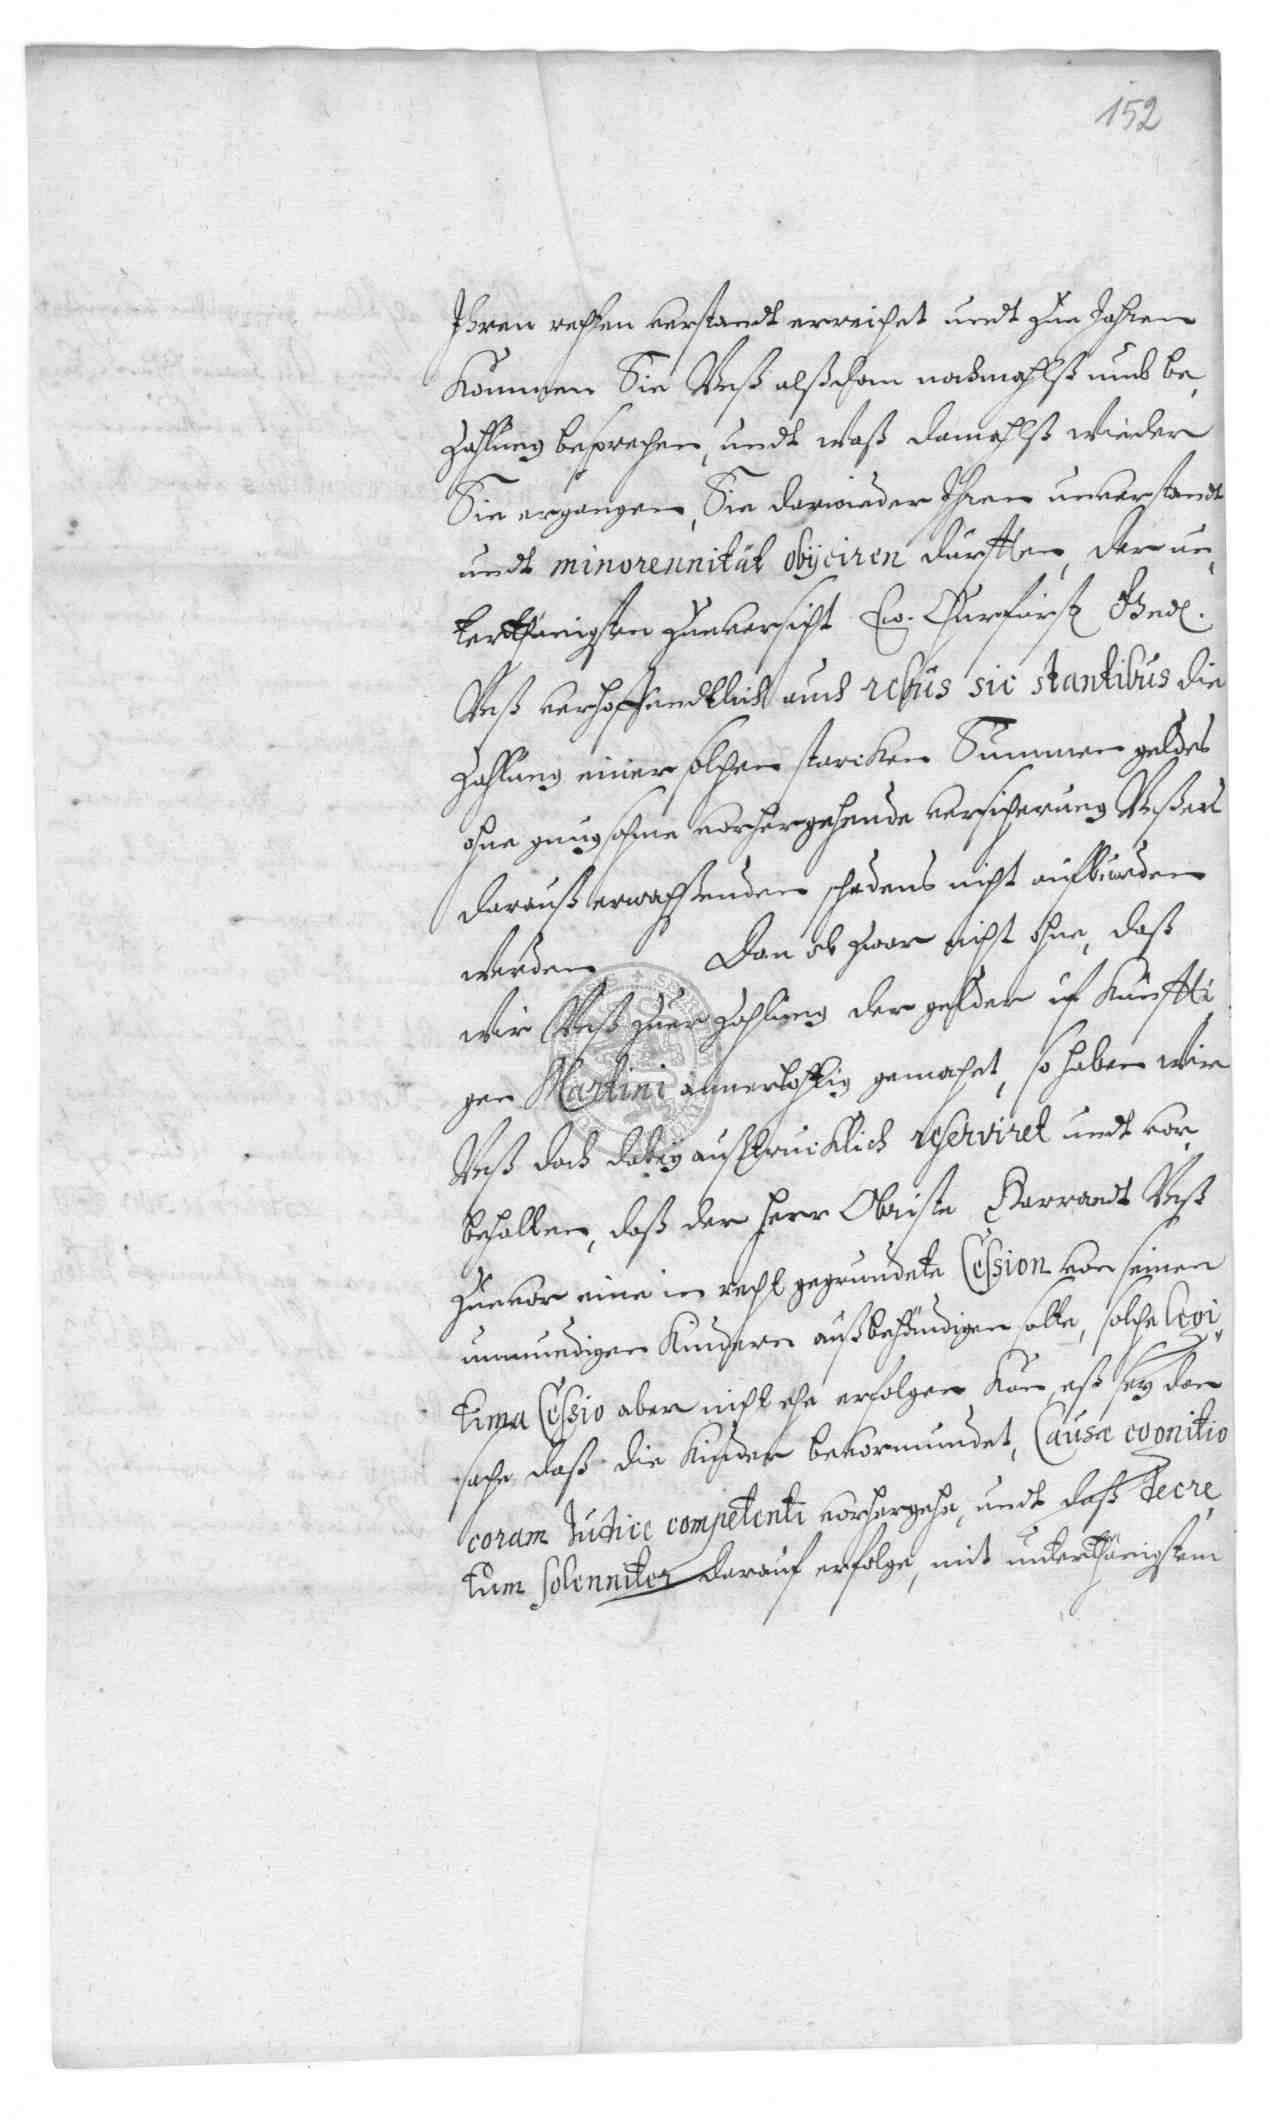 152
Ihren rechten verstandt erreichet undt zue Jahren
Kommen Sie Unß alßdan nachmahlß umb be,
zahlung besprechen, undt waß damahlß wieder
Sie ergangen, Sie darwieder Ihren unverstandt
undt minorennität obijciren dürfften, der un,
terthänigsten zueversicht Ew. Churfürstl Gnd.
Unß verhoffendtlich auch rebus sic stantibus die
zahlung einer solchen starcken Summen geldes
ohne gnugsahme vorhergehende versicherung Unßers
darauß erwachsenden schadens nicht auffbürden
werden. Dan ob zwar nicht ohne, daß
wir Unß zuer zahlung der gelder uf Künffti,
gen Martini annerbothig gemachet, so haben wir
Unß doch dabey außtrücklich reserviret undt vor,
behalten, daß der Herr Obriste Barrandt Unß
zuevor eine in recht gegrundete Cession von seinen
unmundigen Kindern außbehändigen solte, solche legi,
tima Cessio aber nicht ehe erfolgen Kan, eß sey dan
sache daß die Kinder bevormundet, Causæ cognitio
coram Judice competenti vorhergehe, undt daß decre,
tum solenniter darauf erfolge, mit unterthänigstem